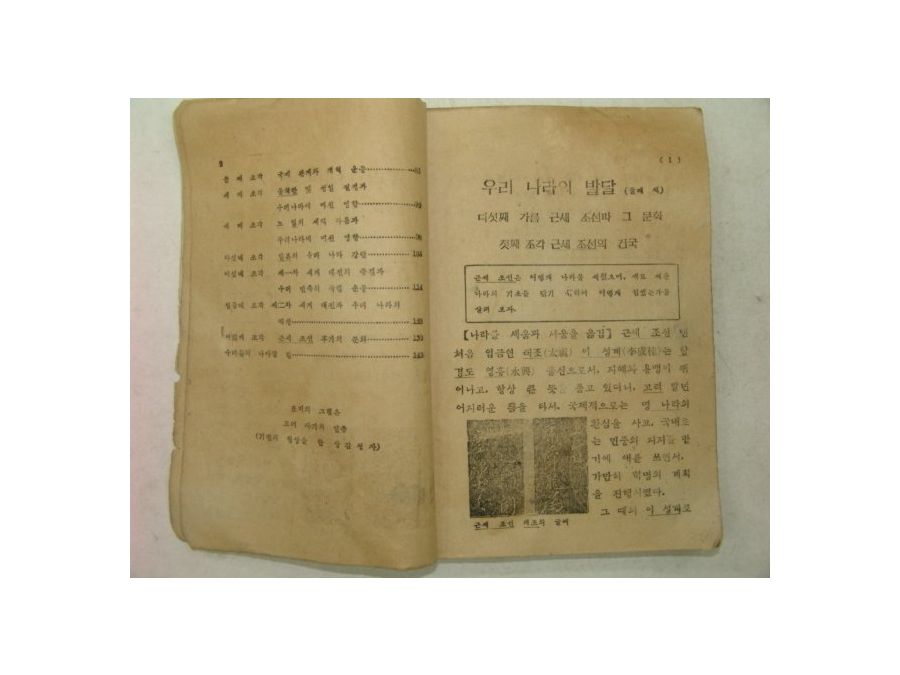 둘째 조각 국제 관계와 개혁 운동
세째 조각 동학란 및 청일 전쟁과
우리나라에 미친 영향
네째 조각 노 일의 세력 다툼과
우리나라에 미친 영향
다섯째 조각 일본의 우리 나라 강탈
여섯째 조각 제一차 세계 대전의 종결과
우리 민족의 독립 운동 114
일곱째 조각 제二차 세계 대전과 우리 나라의
해방
여덟째 조각 근세 조선 후기의 문화
우리들의 나아갈 길
표지의 그림은
고려 자기의 일종
(1)
우리 나라의 발달 (둘째 치)
다섯째 가름 근세 조선과 그 문화
첫째 조각 근세 조선의 건국
근세 조선은 어떻게 나라를 세웠으며, 새로 세운
나라의 기초를 닦기 위하여 어떻게 힘썼는가를
살펴 보자.
【나라를 세움과 서울을 옮김】 근세 조선 맨
처음 임금인 태조(太祖) 이 성계(李成桂)는 함
경도 영흥(永興) 출신으로서, 지혜와 용맹이 뛰
어나고, 항상 큰 뜻을 품고 있더니, 고려 말년
어지러운 틈을 타서, 국제적으로는 명 나라의
환심을 사고, 국내로
는 민중의 지지를 받
기에 애를 쓰면서,
가만히 혁명의 계획
을 진행시켰다.
그 때의 이 성계로
근세 조선 태조의 글씨